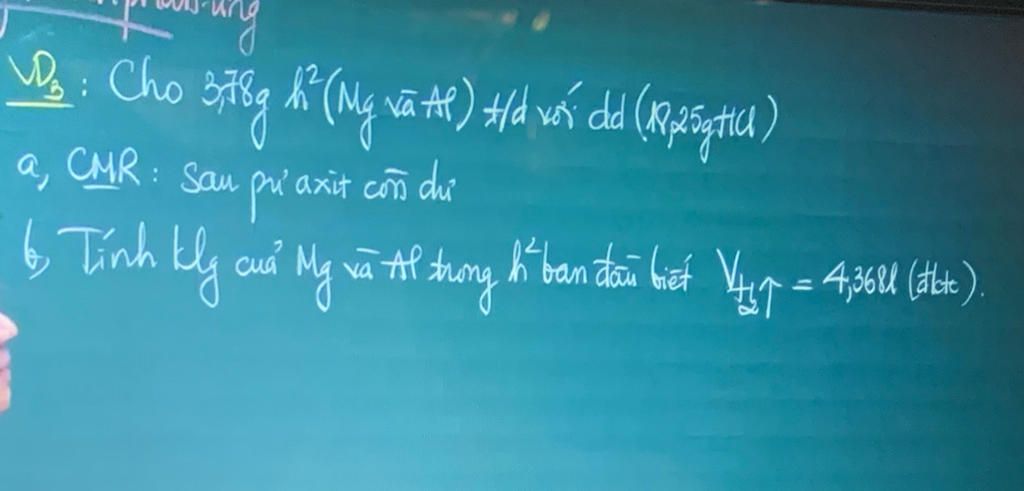 phản ứng
VD3: Cho 3,78g h² (Mg và Al) t/d với dd (18,25g HCl)
a, CMR: Sau pư axit còn dư
b, Tính klg của Mg và Al trong h² ban đầu biết VH2↑ = 4,368l (đktc).